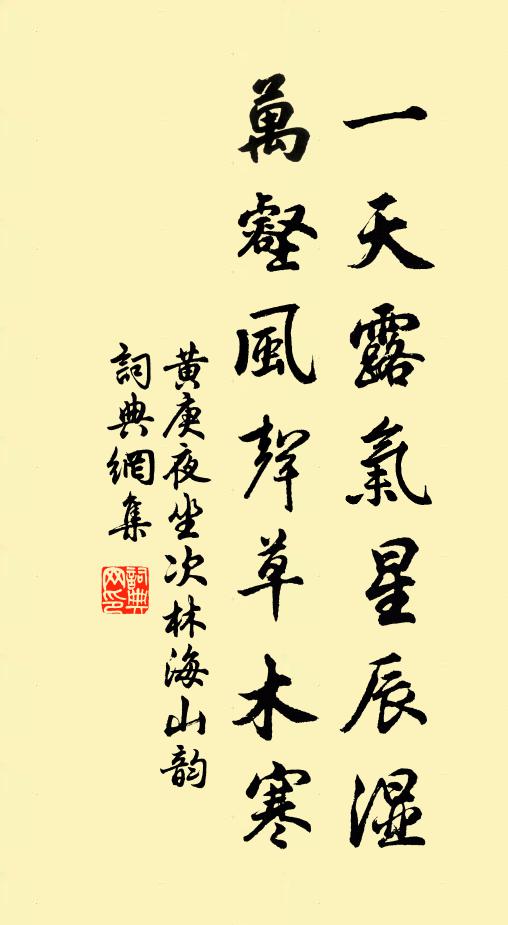 一天露氣星辰濕
萬壑風聲草木寒
黄庚夜坐次林海山韵
詞典網集
詞典
网印